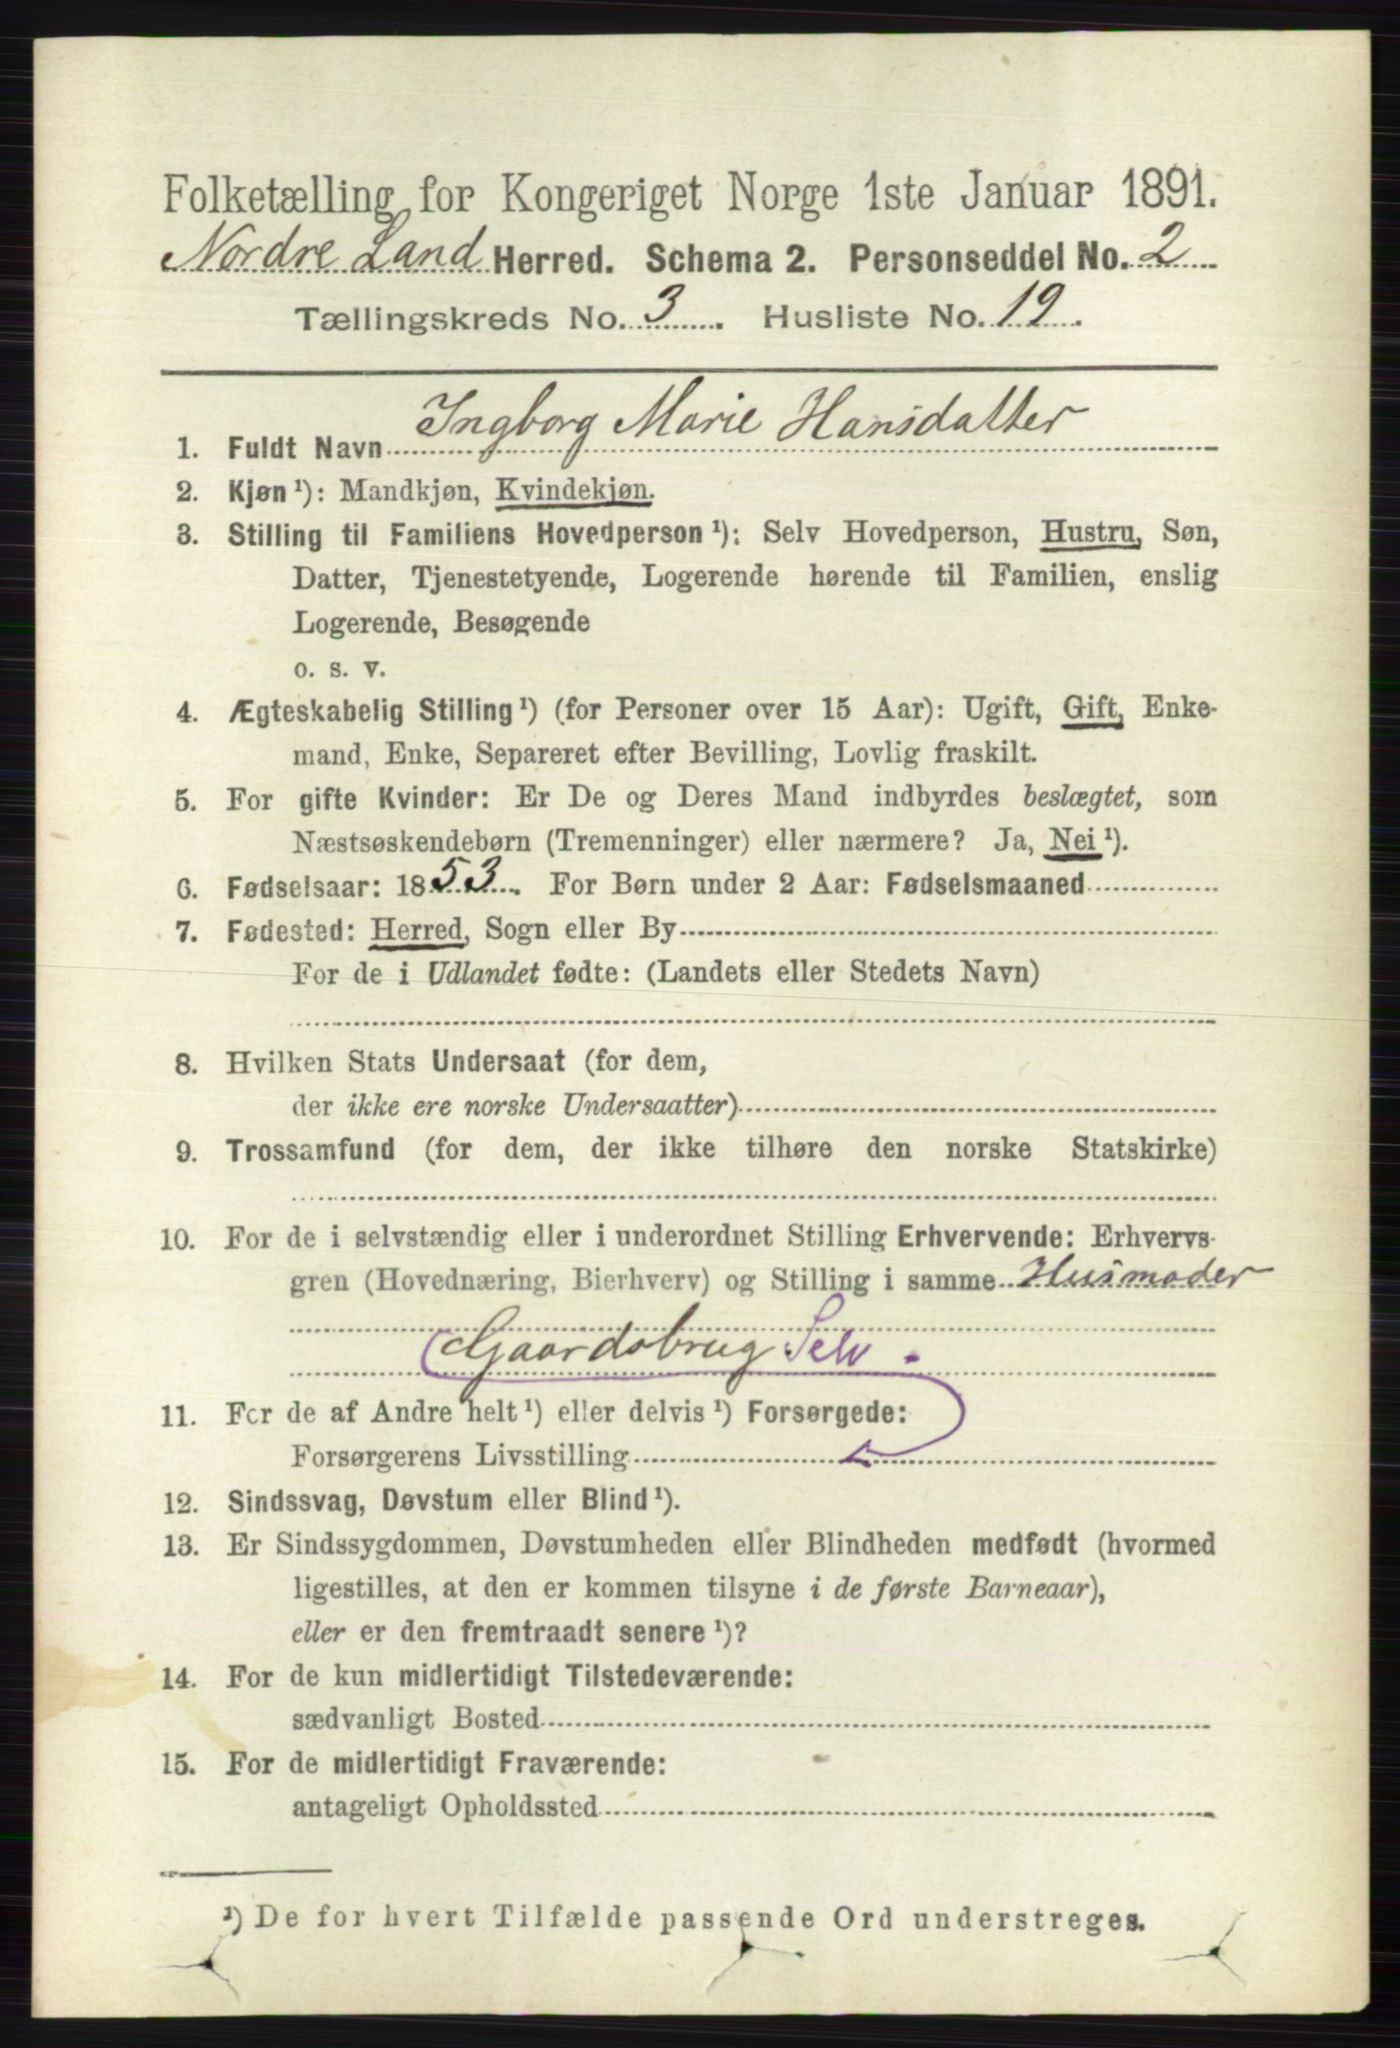 Folketælling for Kongeriget Norge 1ste Januar 1891.
Nordre Land Herred. Schema 2. Personseddel No. 2
Tællingskreds No. 3. Husliste No. 19.
1. Fuldt Navn Ingborg Marie Hansdatter
2. Kjøn ¹): Mandkjøn, Kvindekjøn.
3. Stilling til Familiens Hovedperson ¹): Selv Hovedperson, Hustru, Søn,
Datter, Tjenestetyende, Logerende hørende til Familien, enslig
Logerende, Besøgende
o. s. v.
4. Ægteskabelig Stilling ¹) (for Personer over 15 Aar): Ugift, Gift, Enke-
mand, Enke, Separeret efter Bevilling, Lovlig fraskilt.
5. For gifte Kvinder: Er De og Deres Mand indbyrdes beslægtet, som
Næstsøskendebørn (Tremenninger) eller nærmere? Ja, Nei ¹).
6. Fødselsaar: 1853. For Børn under 2 Aar: Fødselsmaaned
7. Fødested: Herred, Sogn eller By
For de i Udlandet fødte: (Landets eller Stedets Navn)
8. Hvilken Stats Undersaat (for dem,
der ikke ere norske Undersaatter)
9. Trossamfund (for dem, der ikke tilhøre den norske Statskirke)
10. For de i selvstændig eller i underordnet Stilling Erhvervende: Erhvervs-
gren (Hovednæring, Bierhverv) og Stilling i samme Husmoder
Gaardsbrug Selv.
11. For de af Andre helt ¹) eller delvis ¹) Forsørgede:
Forsørgerens Livsstilling
12. Sindssvag, Døvstum eller Blind ¹).
13. Er Sindssygdommen, Døvstumheden eller Blindheden medfødt (hvormed
ligestilles, at den er kommen tilsyne i de første Barneaar),
eller er den fremtraadt senere ¹)?
14. For de kun midlertidigt Tilstedeværende:
sædvanligt Bosted
15. For de midlertidigt Fraværende:
antageligt Opholdssted
¹) De for hvert Tilfælde passende Ord understreges.